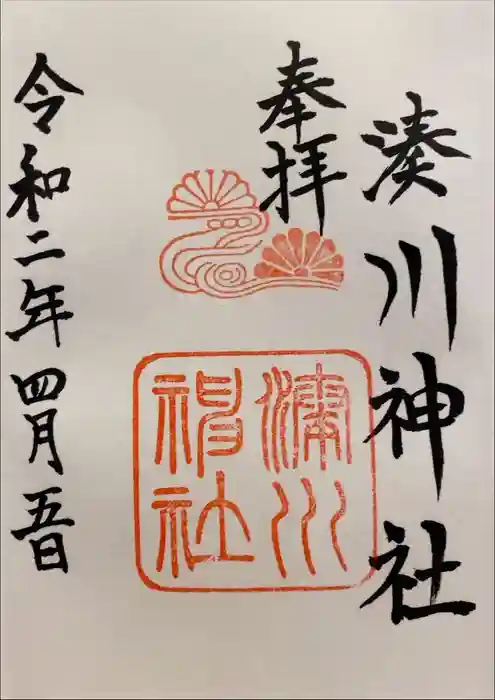 湊川神社
奉拝
湊川
神社
令和二年四月五日